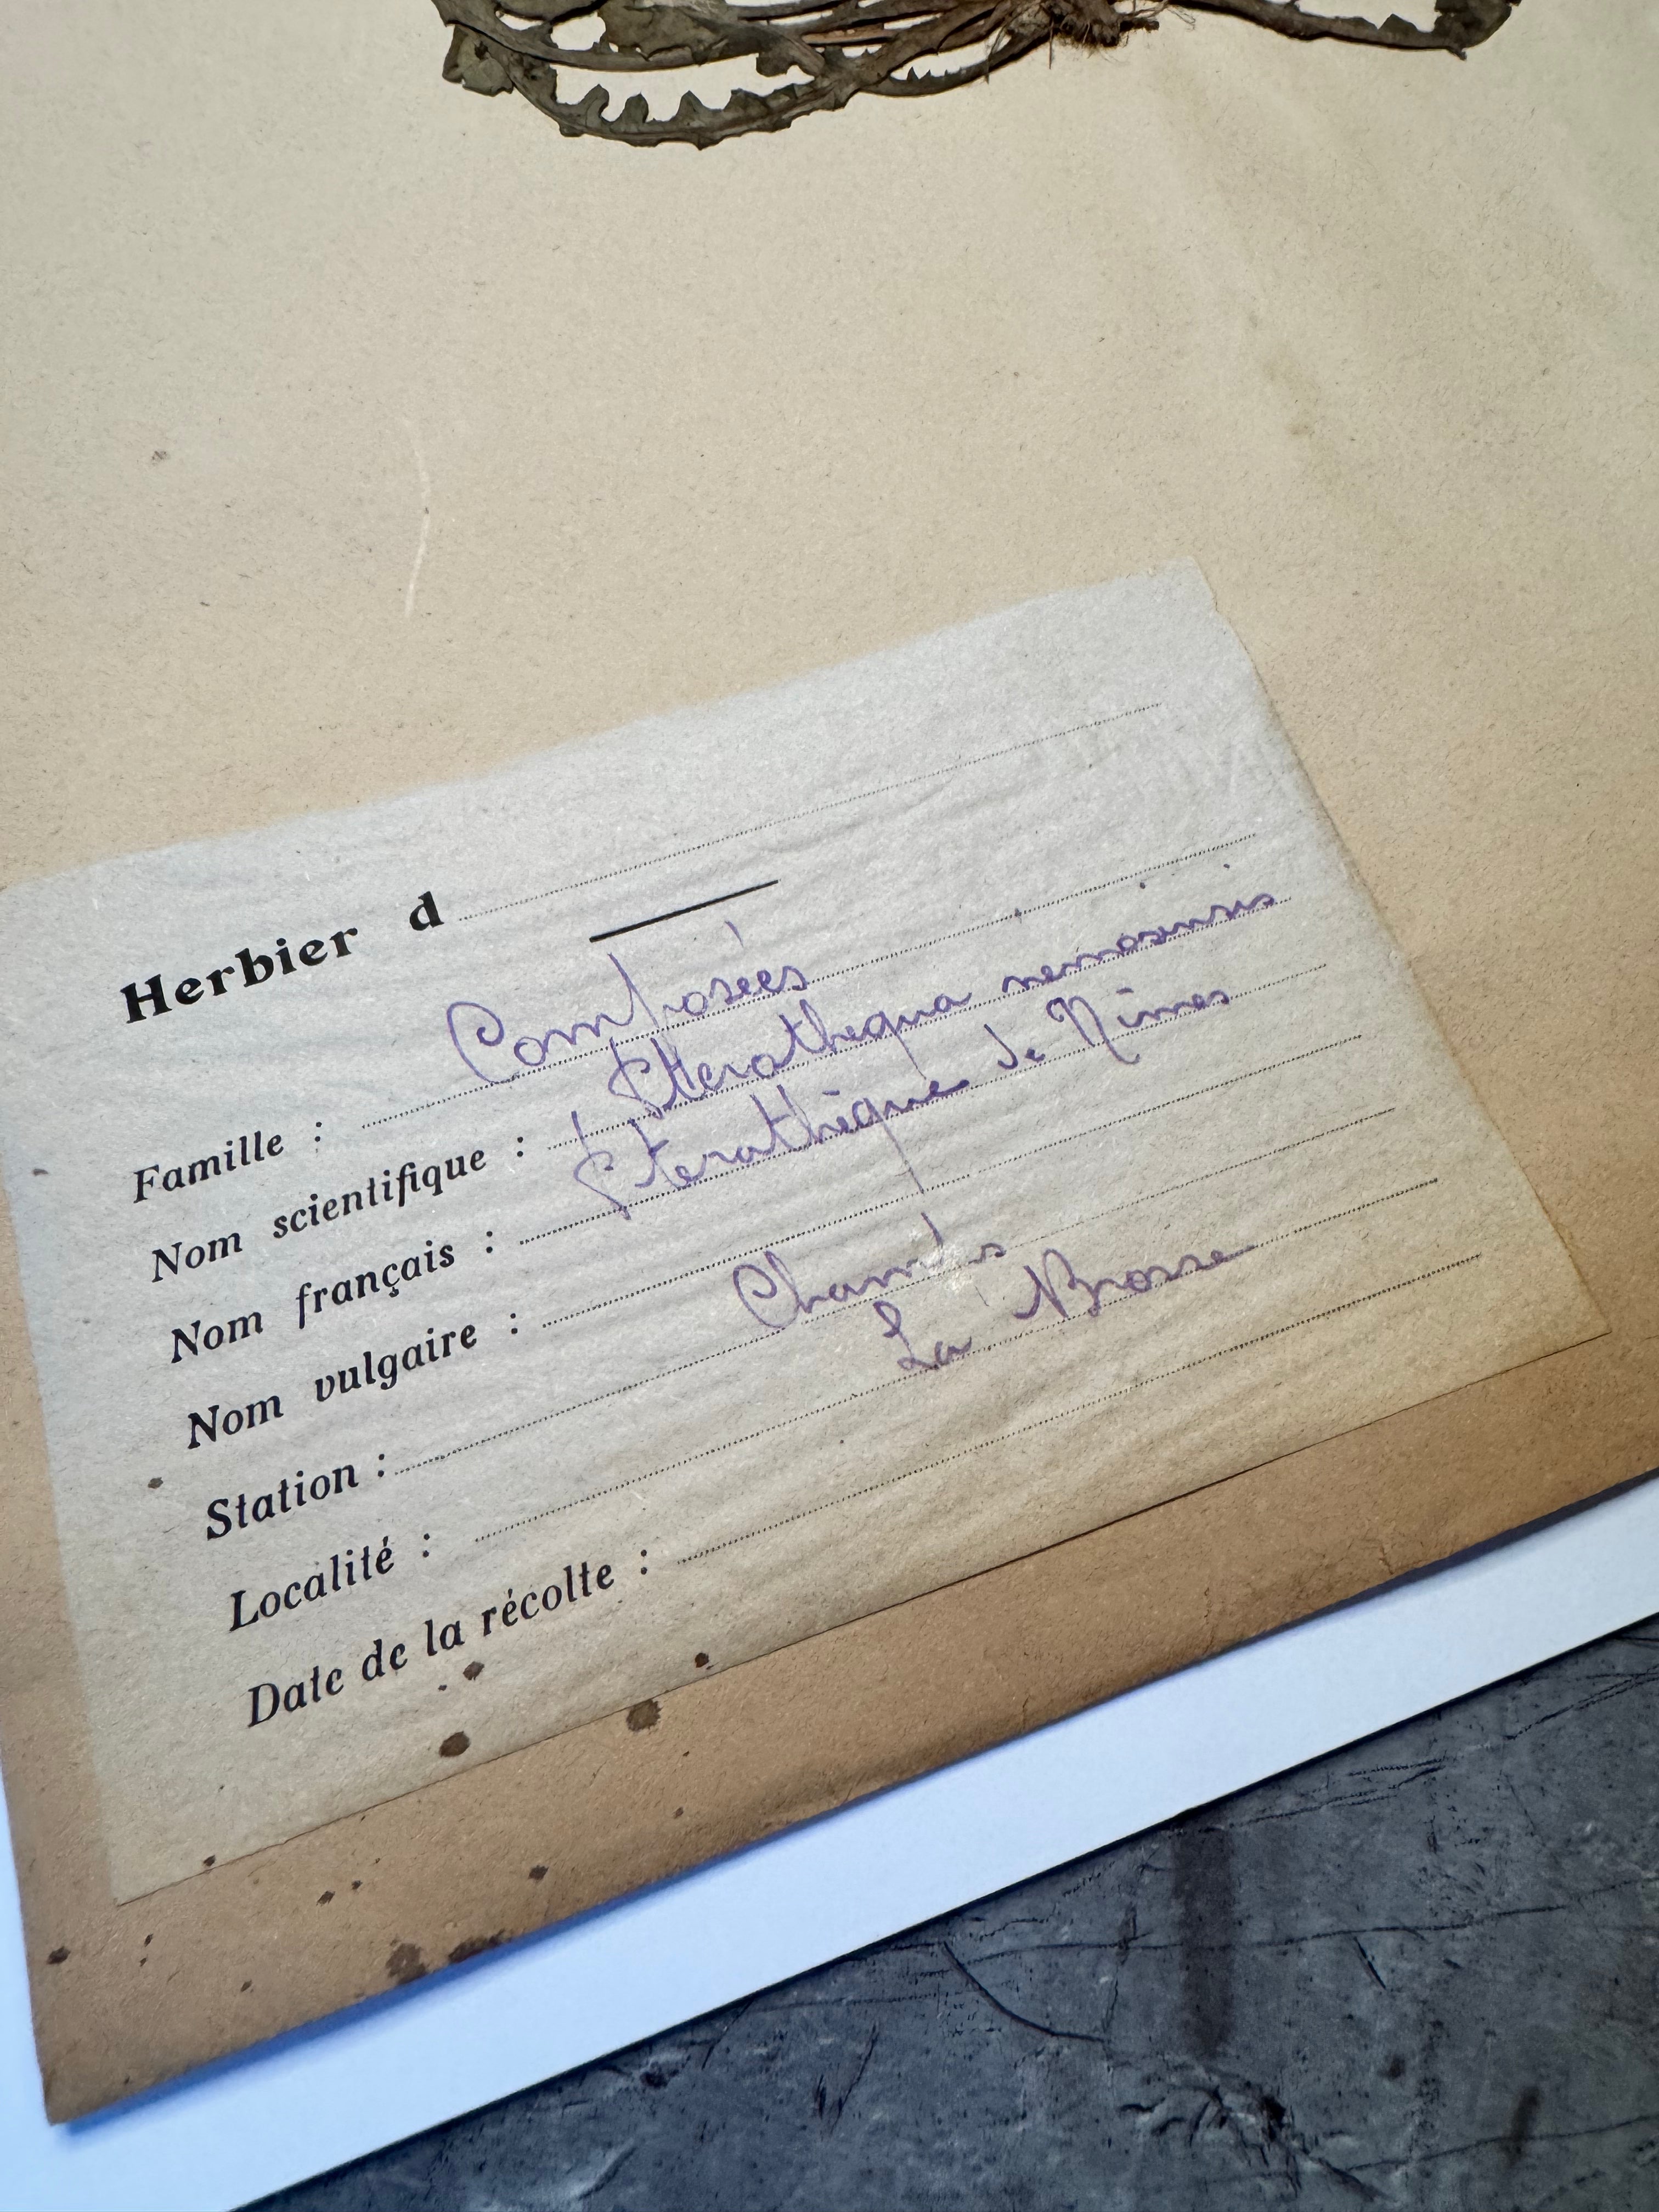 Herbier d
Famille : Composées
Nom scientifique : Pterothequa nemosensis
Nom français : Pterothèque de Nîmes
Nom vulgaire :
Station : Champs
Localité : La Brosse
Date de la récolte :